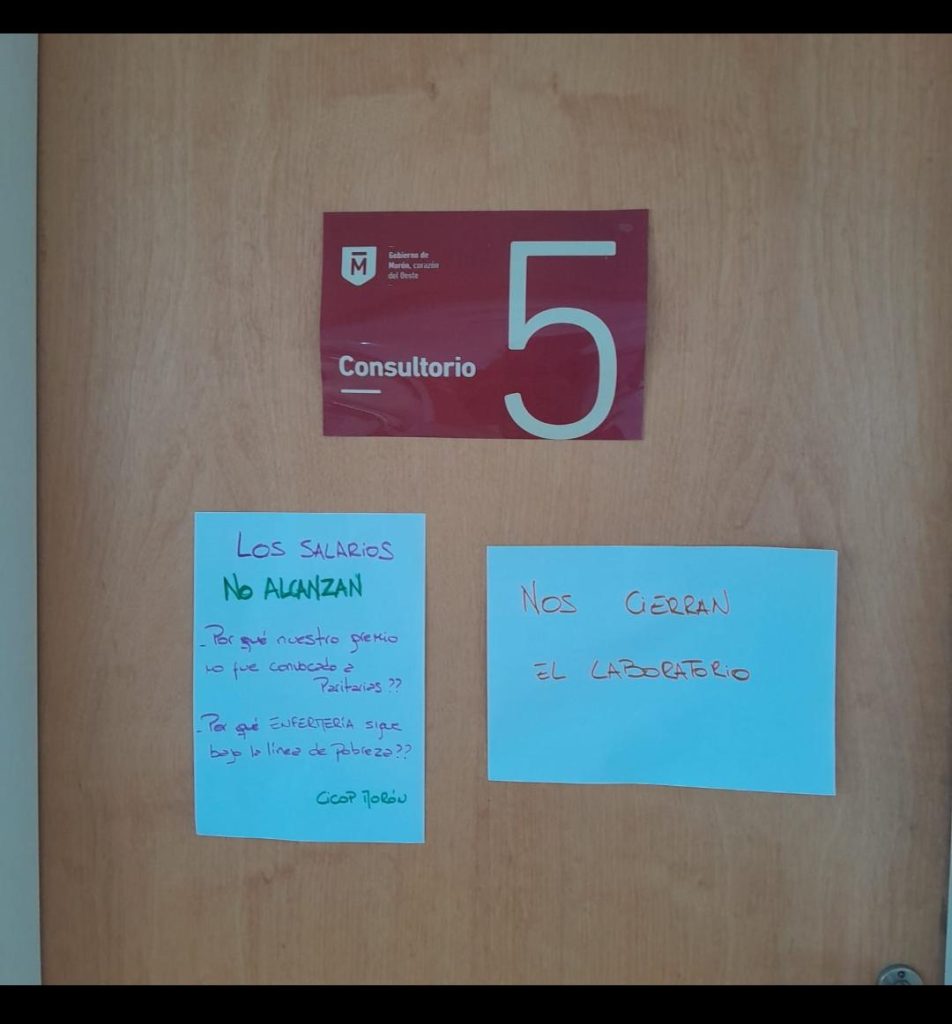 Gobierno de
Morón, corazón
del Oeste
M
Consultorio
5
LOS SALARIOS
NO ALCANZAN
- Por qué nuestro gremio
no fue convocado a
Paritarias ??
- Por qué ENFERMERÍA sigue
bajo la línea de pobreza??
CICOP MORÓN
NOS CIERRAN
EL LABORATORIO